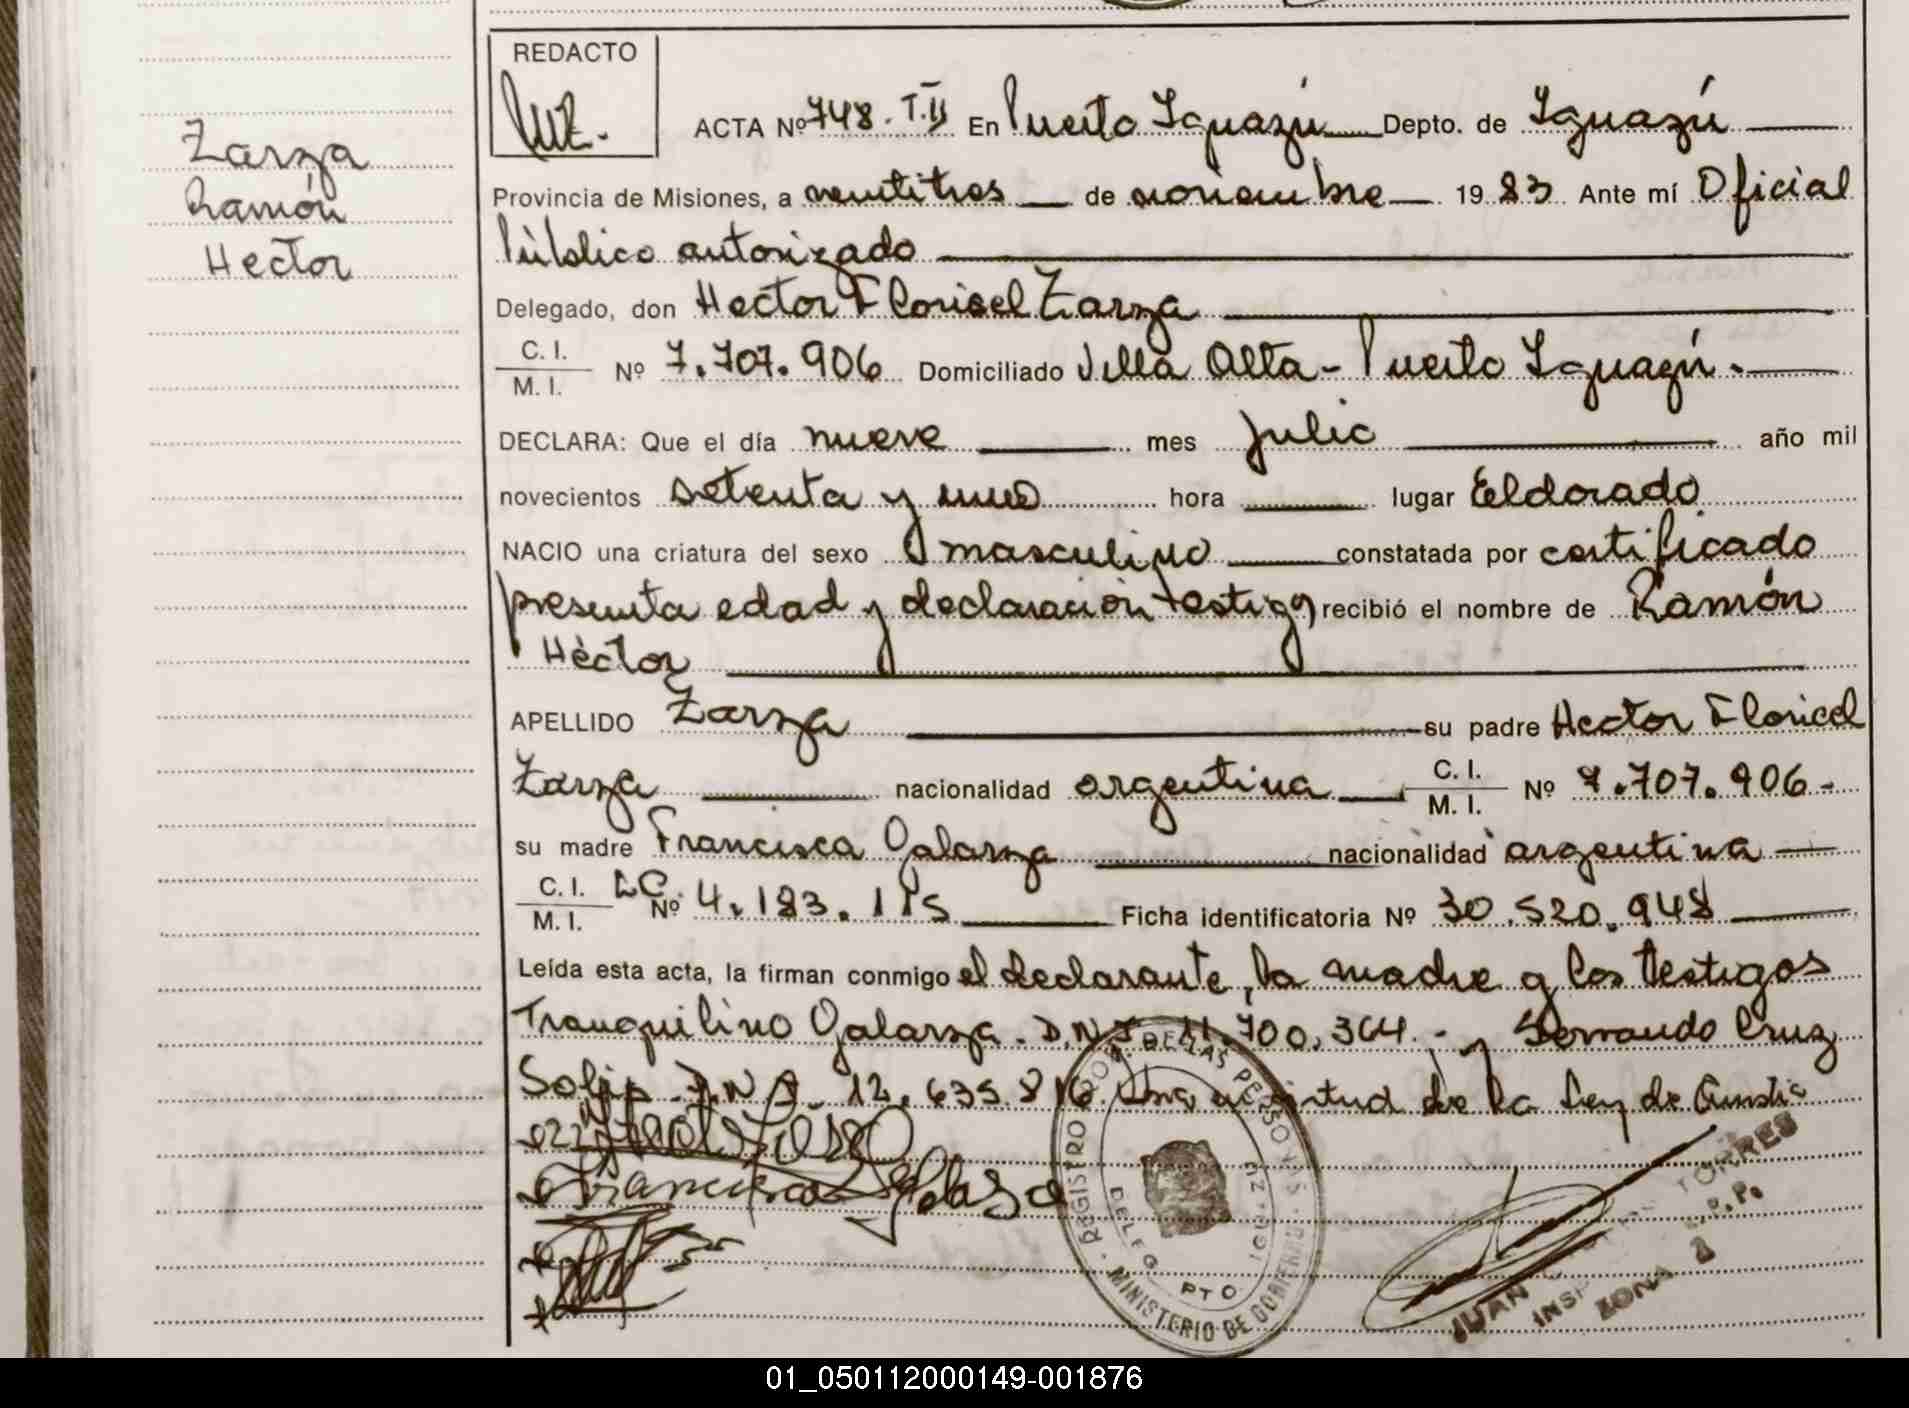 Zarza
Ramón
Hector
REDACTO
ACTA Nº 748. T. II En Puerto Iguazú Depto. de Iguazú
Provincia de Misiones, a veintitres de noviembre 1983 Ante mí Oficial
Público autorizado
Delegado, don Hector Floricel Zarza
C. I.
M. I. Nº 7.707.906 Domiciliado Villa Alta - Puerto Iguazú.
DECLARA: Que el día nueve mes julio año mil
novecientos setenta y uno hora lugar Eldorado
NACIO una criatura del sexo masculino constatada por certificado
presunta edad y declaración testigos recibió el nombre de Ramón
Héctor
APELLIDO Zarza su padre Hector Floricel
Zarza nacionalidad argentina C. I. M. I. Nº 7.707.906.-
su madre Francisca Galarza nacionalidad argentina
C. I. M. I. LC. Nº 4.183.115 Ficha identificatoria Nº 30.520.948
Leída esta acta, la firman conmigo el declarante, la madre y los testigos
Tranquilino Galarza. D.N.I. 11.700.364.- y Servando Cruz
D.N.I. 12.635.816. de la Ley de
Francisca
REGISTRO DE LAS PERSONAS
DELEG. PTO. IGUAZU
MINISTERIO DE GOBIERNO
JUAN TORRES
ZONA 2
01_050112000149-001876